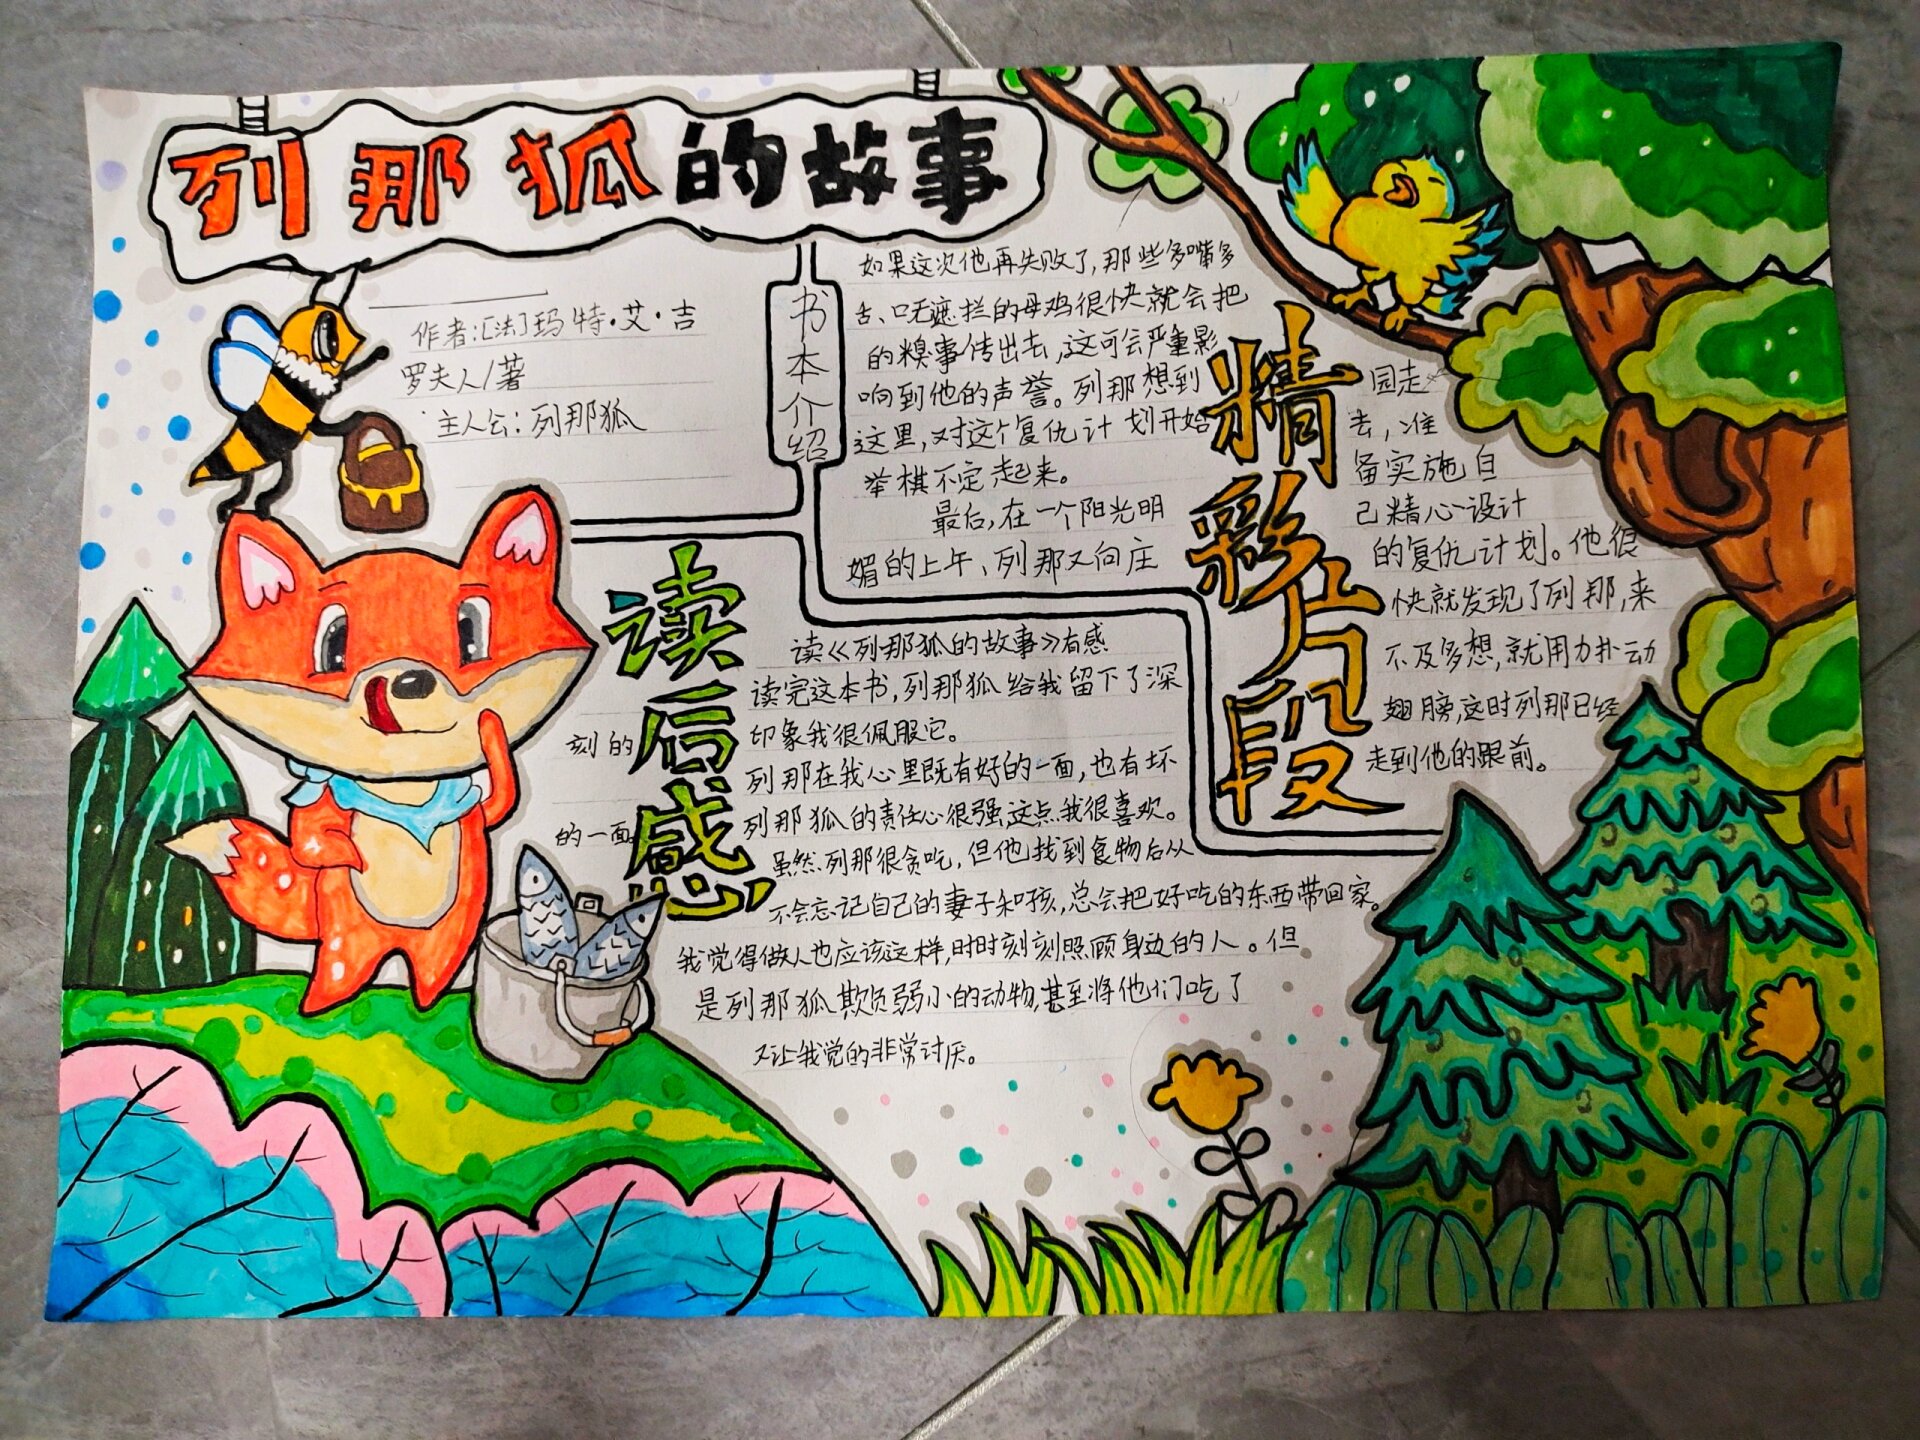 列那狐的故事
作者:[法]玛特·艾·吉
罗夫人/著
主人公:列那狐
书本介绍
如果这次他再失败了,那些多嘴多
舌、口无遮拦的母鸡很快就会把
的糗事传出去,这可会严重影
响到他的声誉。列那想到
这里,对这个复仇计划开始
举棋不定起来。
最后,在一个阳光明
媚的上午、列那又向庄
精彩片段
园走
去,准
备实施自
己精心设计
的复仇计划。他很
快就发现了列那,来
不及多想,就用力扑动
翅膀,这时列那已经
走到他的跟前。
读后感
读《列那狐的故事》有感
读完这本书,列那狐给我留下了深
刻的印象我很佩服它。
列那在我心里既有好的一面,也有坏
的一面。列那狐的责任心很强,这点我很喜欢。
虽然列那很贪吃,但他找到食物后从
不会忘记自己的妻子和孩,总会把好吃的东西带回家。
我觉得做人也应该这样,时时刻刻照顾身边的人。但
是列那狐欺负弱小的动物,甚至将他们吃了
又让我觉的非常讨厌。